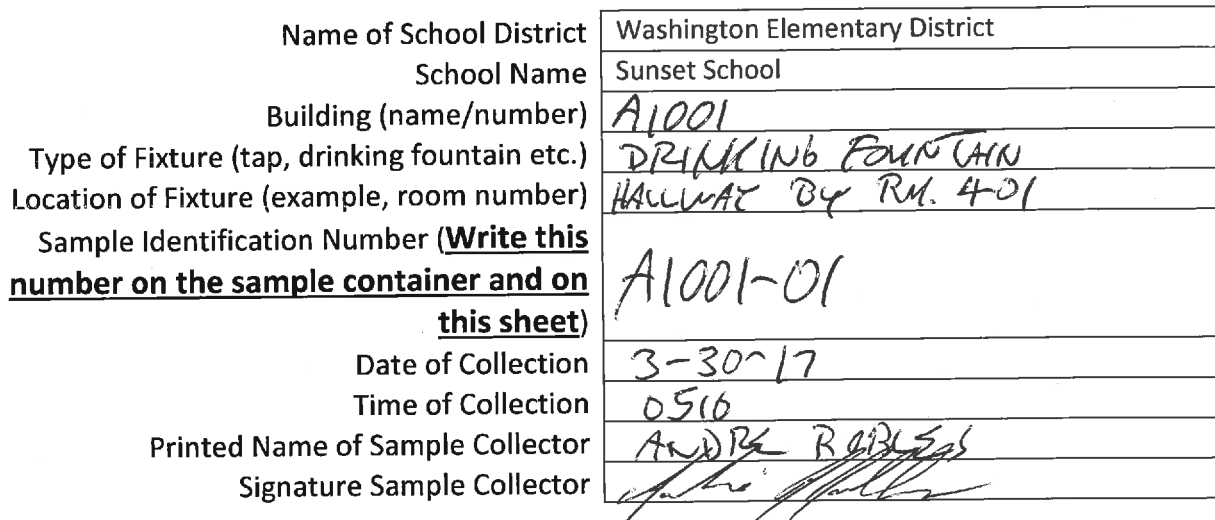 Name of School District Washington Elementary District
School Name Sunset School
Building (name/number) A1001
Type of Fixture (tap, drinking fountain etc.) DRINKING FOUNTAIN
Location of Fixture (example, room number) HALLWAY By RM. 401
Sample Identification Number (Write this
number on the sample container and on
this sheet) A1001-01
Date of Collection 3-30-17
Time of Collection 0510
Printed Name of Sample Collector ANDRE ROBLES
Signature Sample Collector